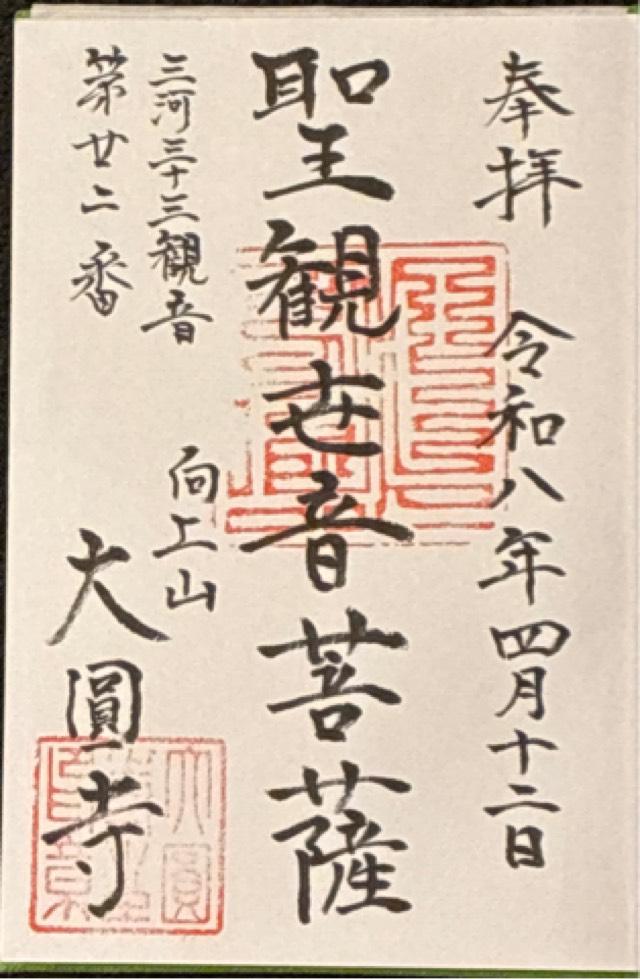 奉拝 令和八年四月十二日
聖観世音菩薩
三河三十三観音
第廿二番
向上山
大圓寺